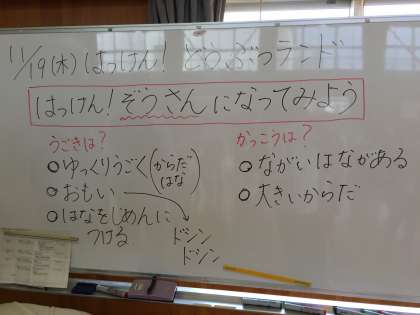 11/19(木) はっけん! どうぶつランド
はっけん! ぞうさんになってみよう
うごきは?
○ゆっくりうごく(からだ はな)
○おもい
ドシン
ドシン
○はなをじめんに
つける
かっこうは?
○ながいはながある
○大きいからだ